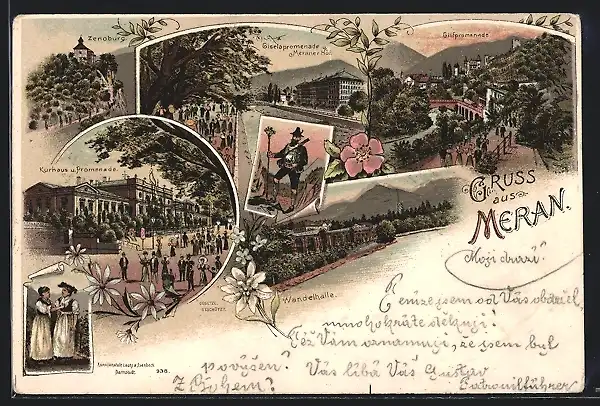 Zenoburg.
Giselapromenade u.
Meraner Hof.
Gilfpromenade
Kurhaus u. Promenade.
GRUSS
aus
MERAN.
Wandelhalle.
GESETZL.
GESCHÜTZT.
Darmstadt.
936.
Moji drazí!
Peníze jsem od Vás obdržel,
mnohokráte děkuji!
Též Vám oznamuji, že jsem byl
povýšen! Vás líbá Váš Gustav
Z Bohem! Patrouilführer